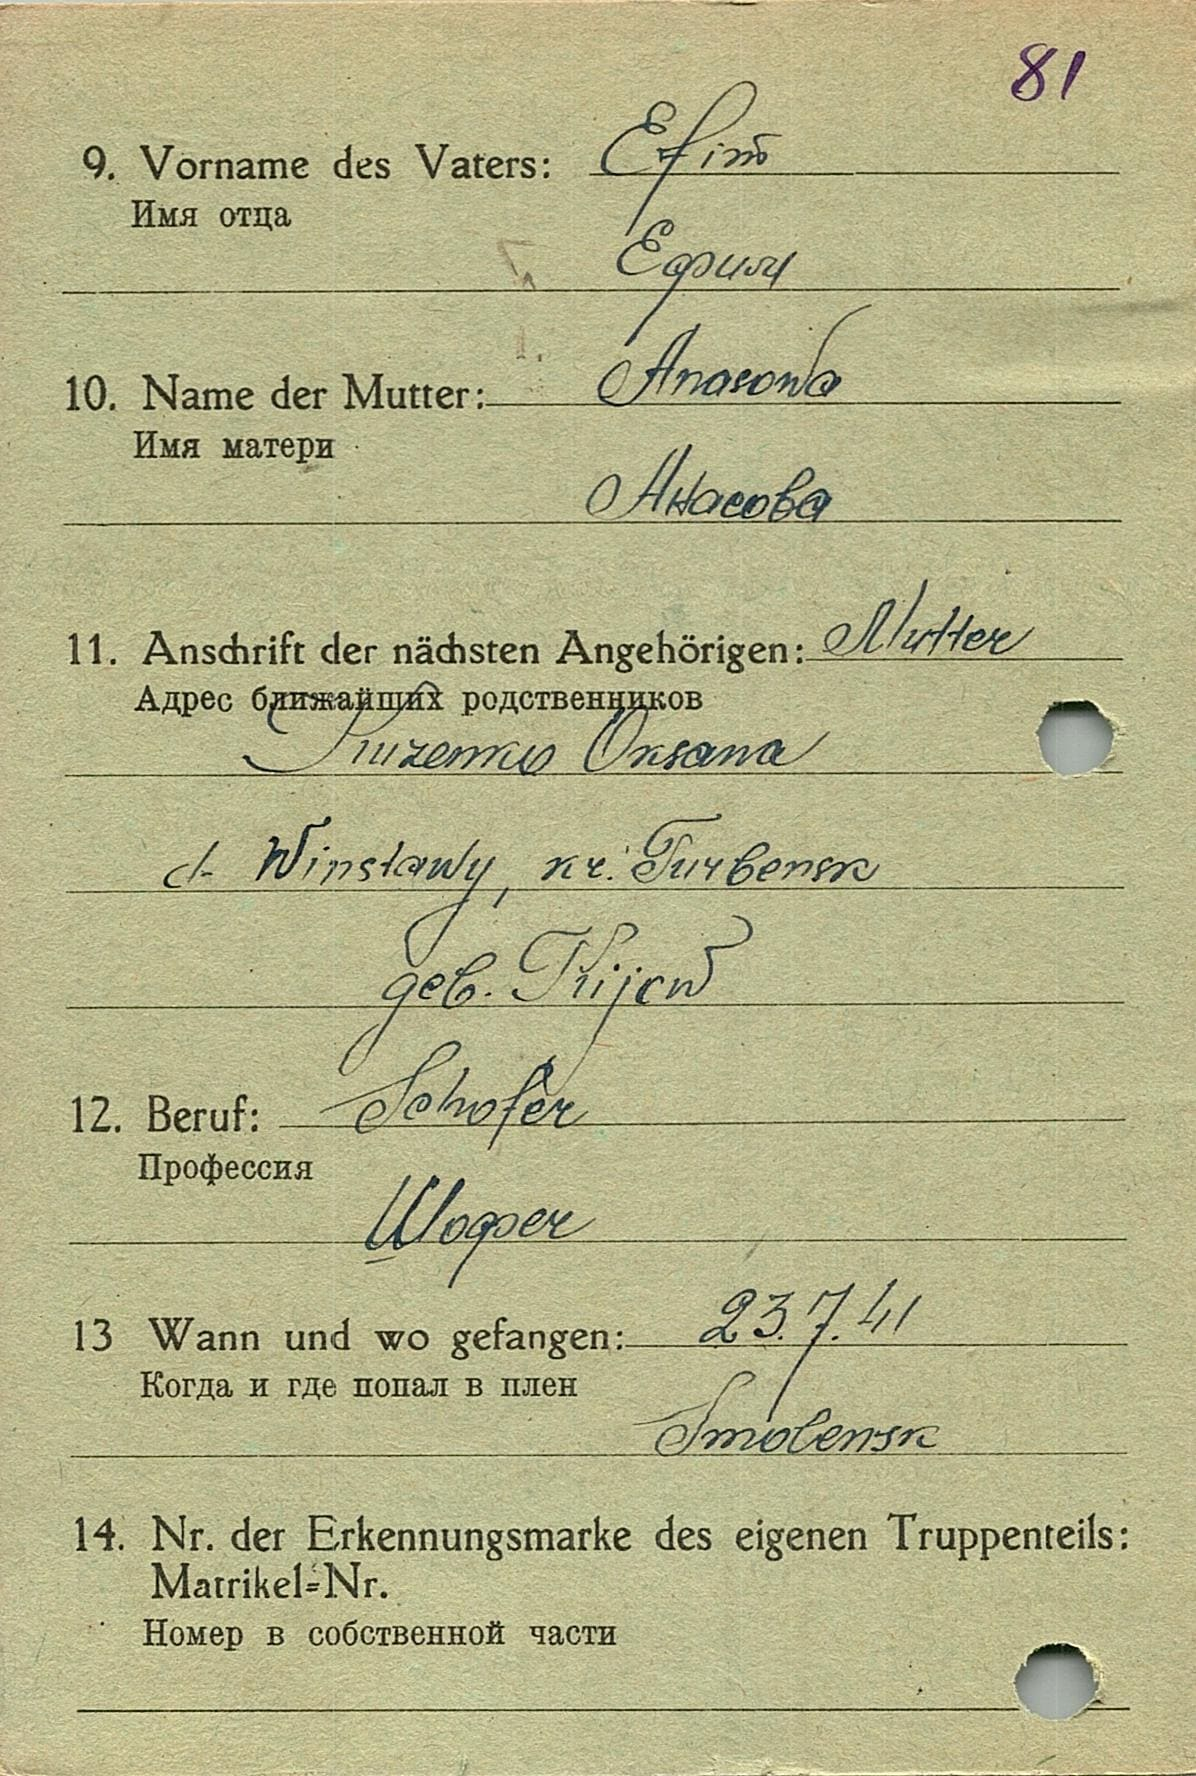 81
9. Vorname des Vaters: Efim
Имя отца
Ефим
10. Name der Mutter: Anasowa
Имя матери
Анасова
11. Anschrift der nächsten Angehörigen: Mutter
Адрес ближайших родственников
Oksana
d. Winstawy, kr. Turbensk
geb. Kijew
12. Beruf: Schofer
Профессия
Шофер
13 Wann und wo gefangen: 23.7.41
Когда и где попал в плен
Smolensk
14. Nr. der Erkennungsmarke des eigenen Truppenteils:
Matrikel=Nr.
Номер в собственной части